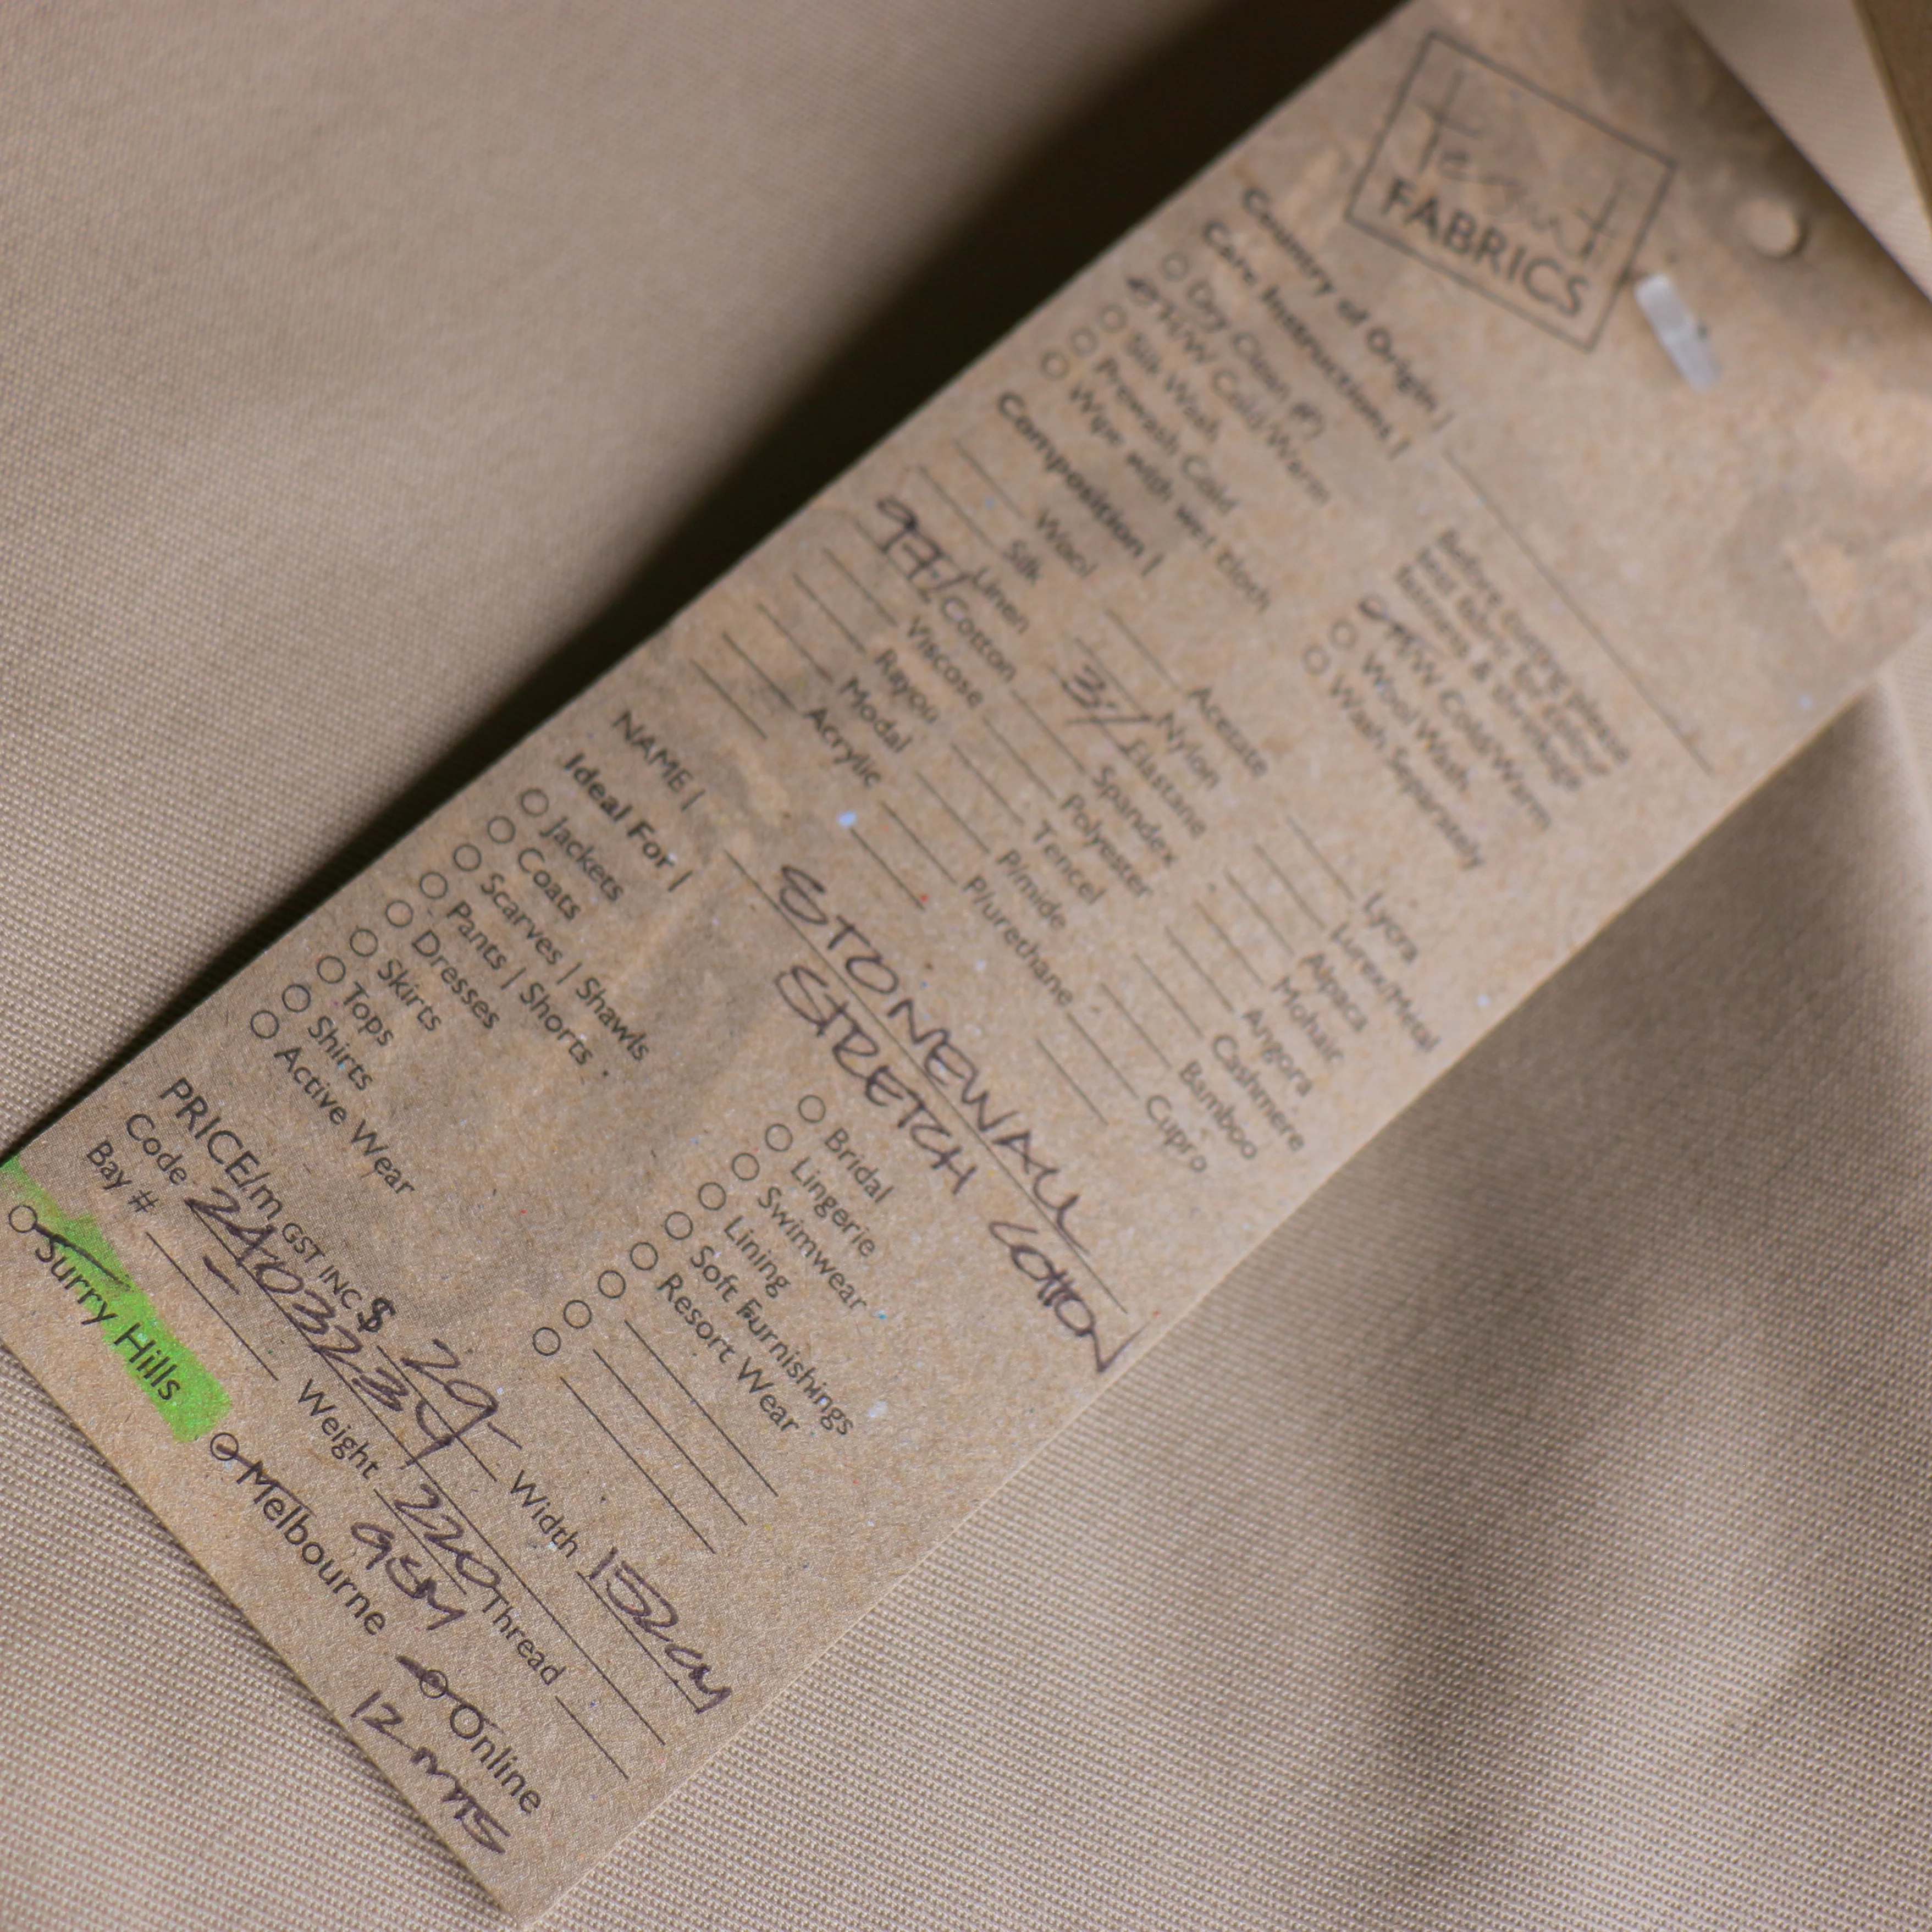 FABRICS
Country of Origin |
Care Instructions |
Before cutting please
test fabric for colour
fastness & shrinkage
Dry Clean (P)
H/W Cold/Warm
Silk Wash
Prewash Cold
Wipe with wet cloth
M/W Cold/Warm
Wool Wash
Wash Separately
Composition |
Wool
Silk
Linen
97% Cotton
Viscose
Rayon
Modal
Acrylic
Acetate
Nylon
3% Elastane
Spandex
Polyester
Tencel
P/mide
P/urethane
Lycra
Lurex/Metal
Alpaca
Mohair
Angora
Cashmere
Bamboo
Cupro
NAME | STONEWALL
STRETCH COTTON
Ideal For |
Jackets
Coats
Scarves | Shawls
Pants | Shorts
Dresses
Skirts
Tops
Shirts
Active Wear
Bridal
Lingerie
Swimwear
Lining
Soft Furnishings
Resort Wear
PRICE/m GST INC $ 29- Width 152cm
Code 24032234 Thread
Bay # - Weight 220
GSM
Surry Hills Melbourne Online
12 mts